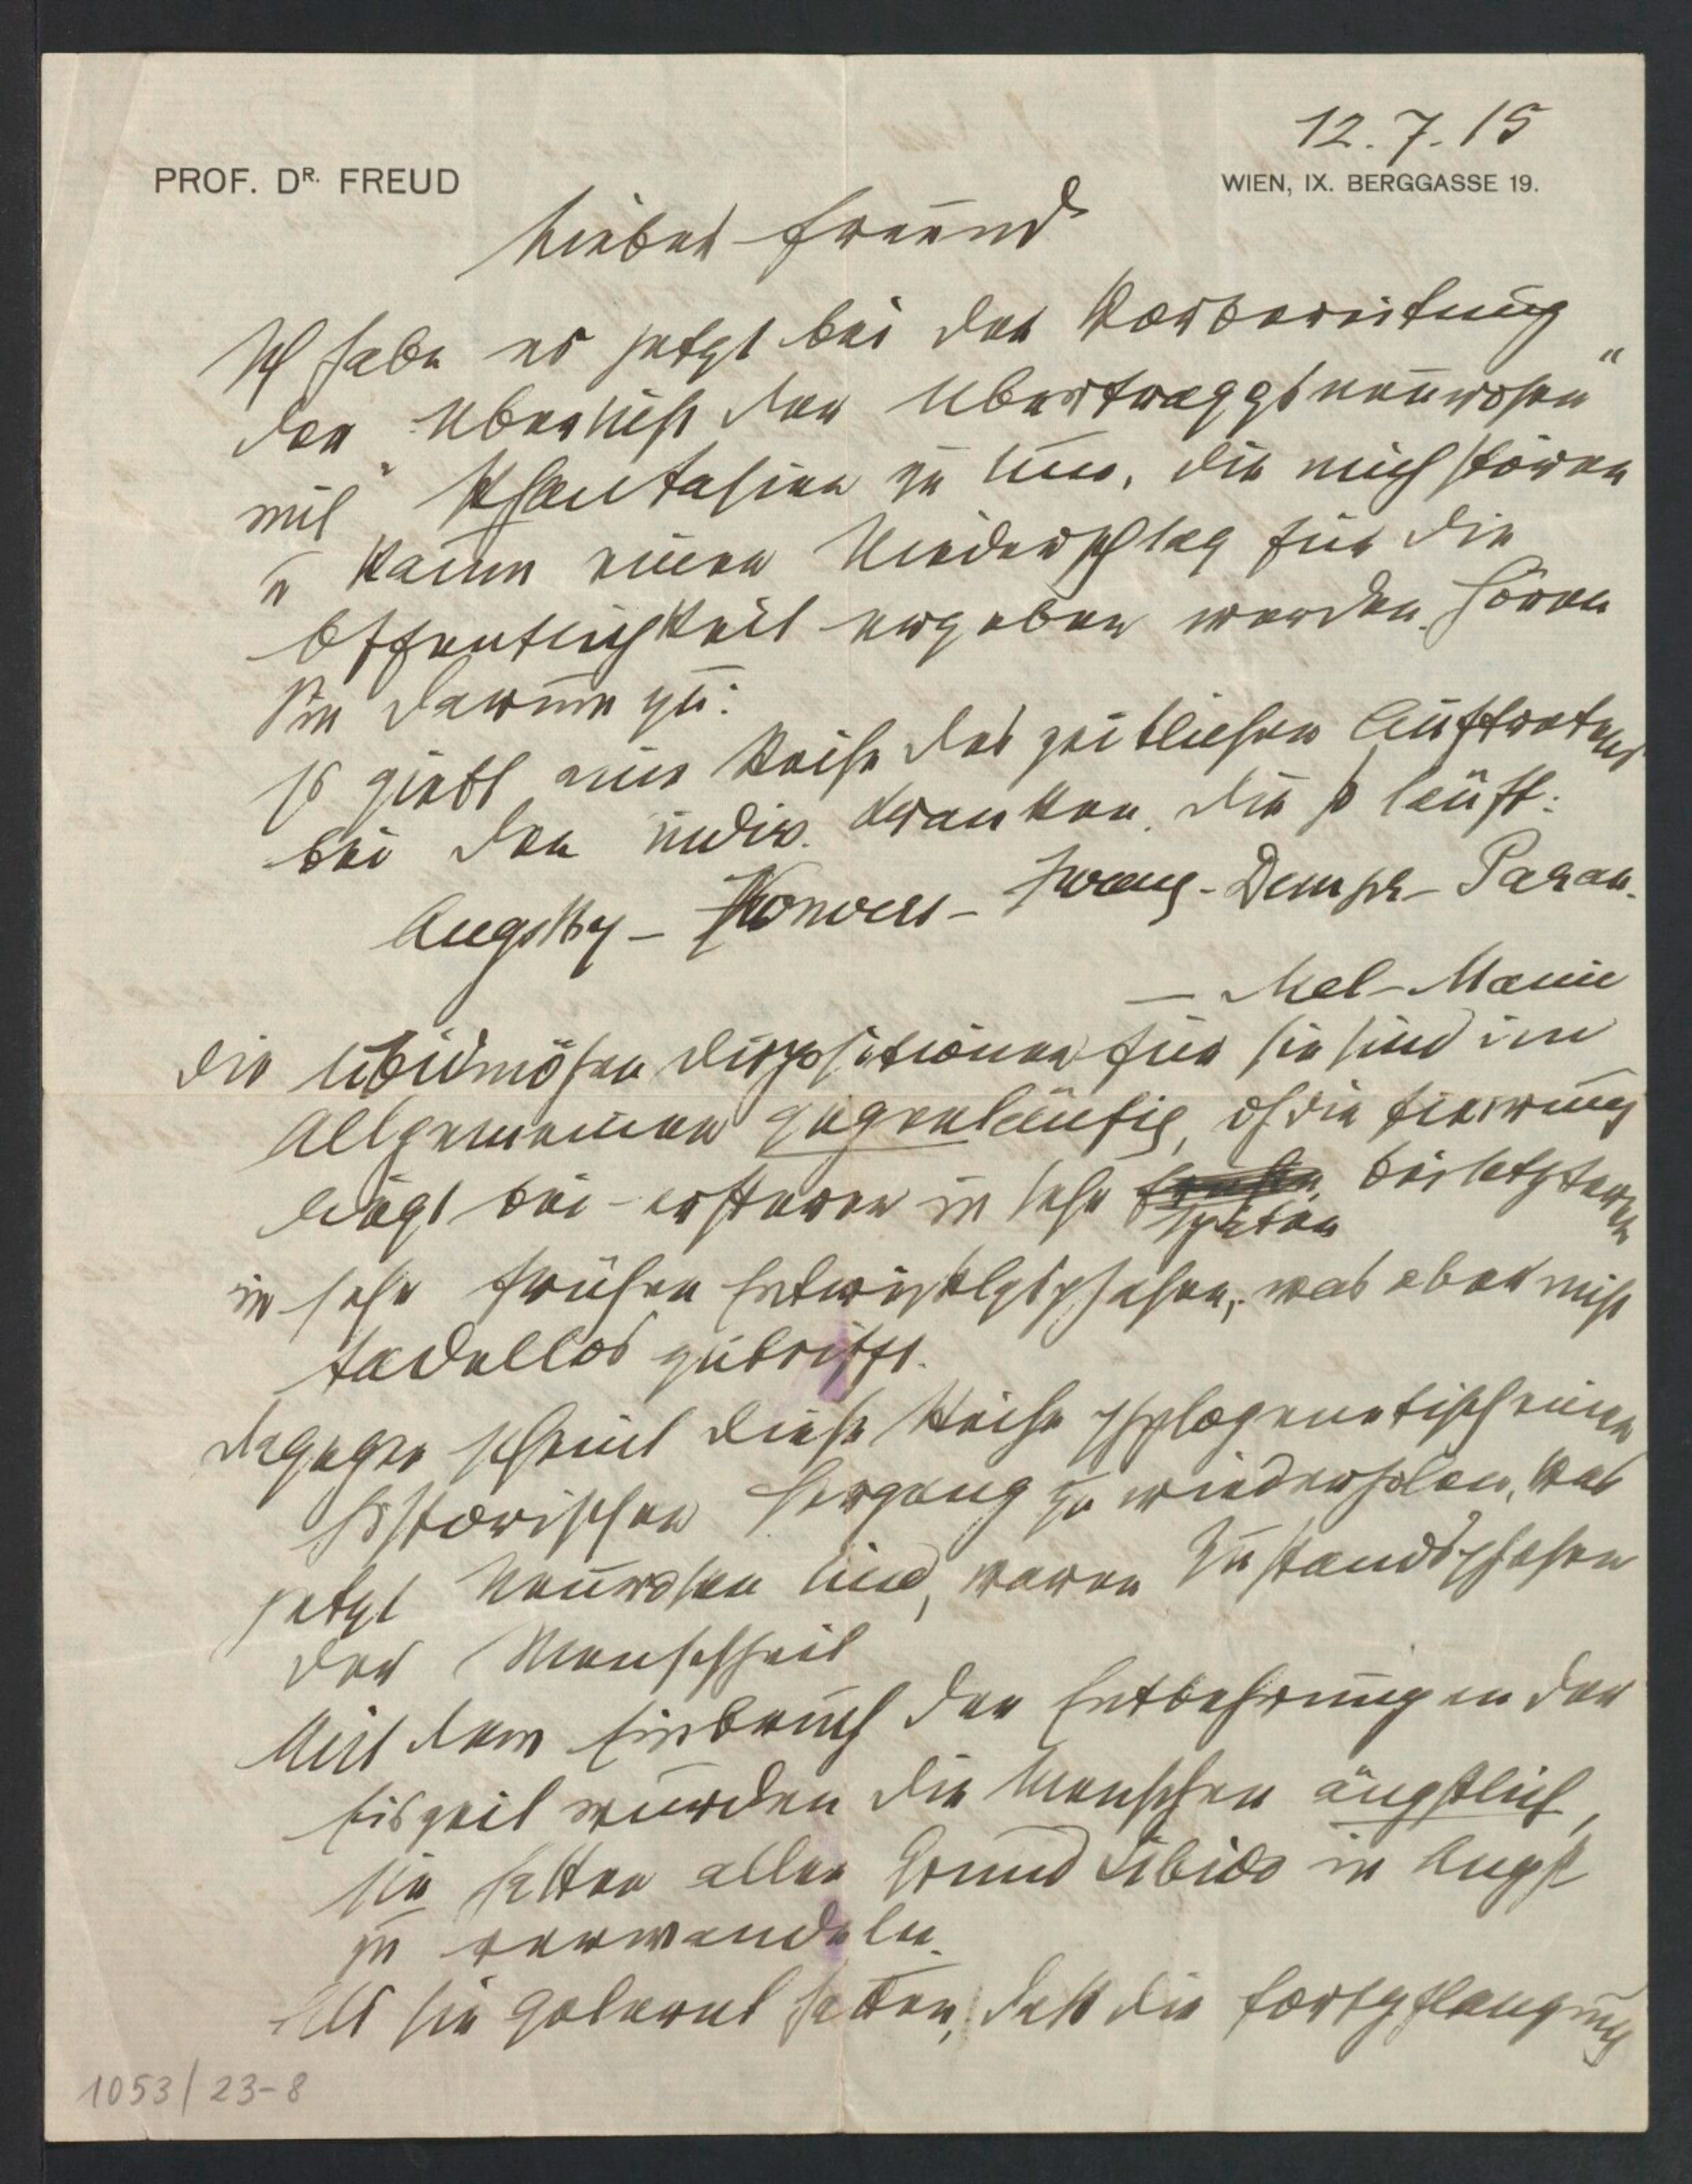 12.7.15
PROF. DR. FREUD
WIEN, IX. BERGGASSE 19.
Lieber Freund
Ich habe es jetzt bei der Vorbereitung
der „Übersicht der Übertraggsneurosen“
mit Phantasien zu tun, die mich stören
u kaum einen Niederschlag für die
Öffentlichkeit ergeben werden. Hören
Sie darum zu:
Es giebt eine Reihe des zeitlichen Auftretens
bei den indiv. Kranken, die so läuft:
Angsthy – Konvers – Zwang – Dem pr – Paran.
– Mel – Manie
Die libidinösen Dispositionen für sie sind im
Allgemeinen gegenläufig, dh die Fixierung
liegt bei ersteren in sehr späten bei letzteren
in sehr frühen Entwicklgsphasen, was aber nicht
tadellos zutrifft.
Dagegen scheint diese Reihe phylogenetisch einen
historischen Hergang zu wiederholen. Was
jetzt Neurosen sind, waren Zustandsphasen
der Menschheit
Mit dem Einbruch der Entbehrungen der
Eiszeit wurden die Menschen ängstlich,
sie hatten allen Grund Libido in Angst
zu verwandeln.
Als sie gelernt hatten, daß die Fortpflanzung
1053/23-8